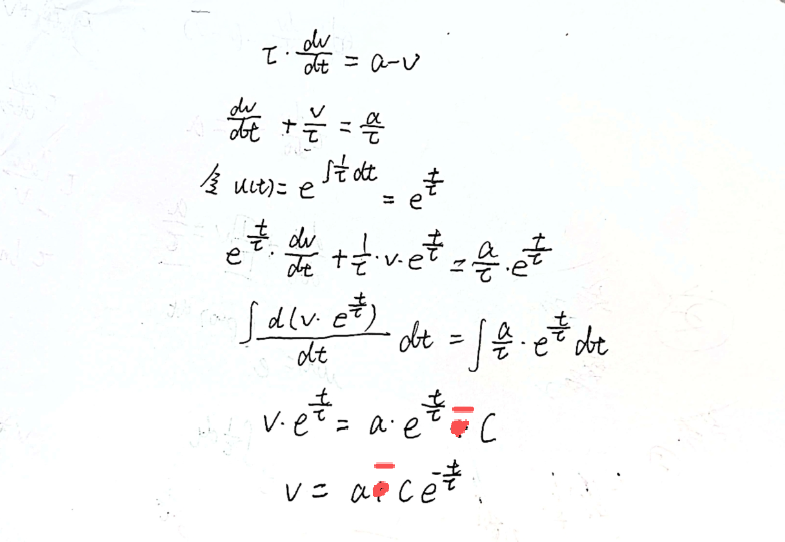 τ · dv/dt = a - v
dv/dt + v/τ = a/τ
令 u(t) = e^{∫1/τ dt} = e^{t/τ}
e^{t/τ} · dv/dt + 1/τ · v · e^{t/τ} = a/τ · e^{t/τ}
∫ d(v · e^{t/τ})/dt dt = ∫ a/τ · e^{t/τ} dt
v · e^{t/τ} = a · e^{t/τ} - C
v = a - C e^{-t/τ}